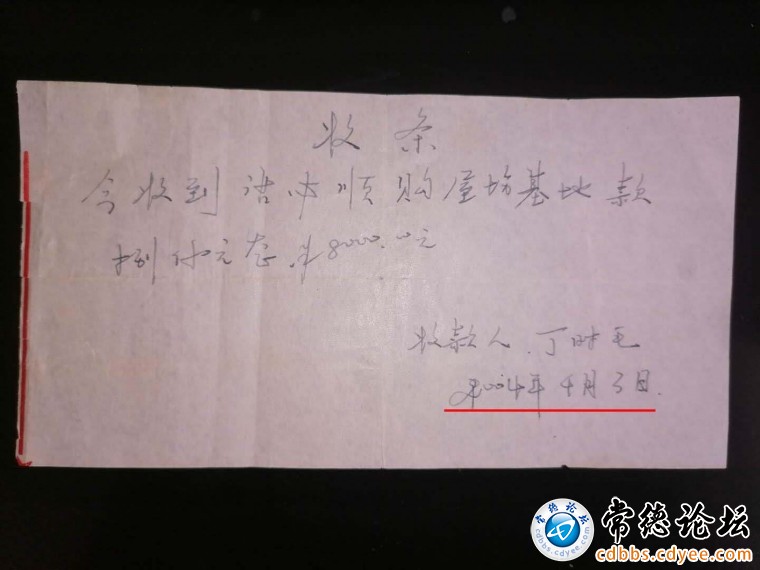 收条
今收到 必顺购屋场基地款
捌仟元整.¥8000.00元
收款人.丁时毛
2004年4月3日.
常德论坛
常德论坛
cdbbs.cdyee.com